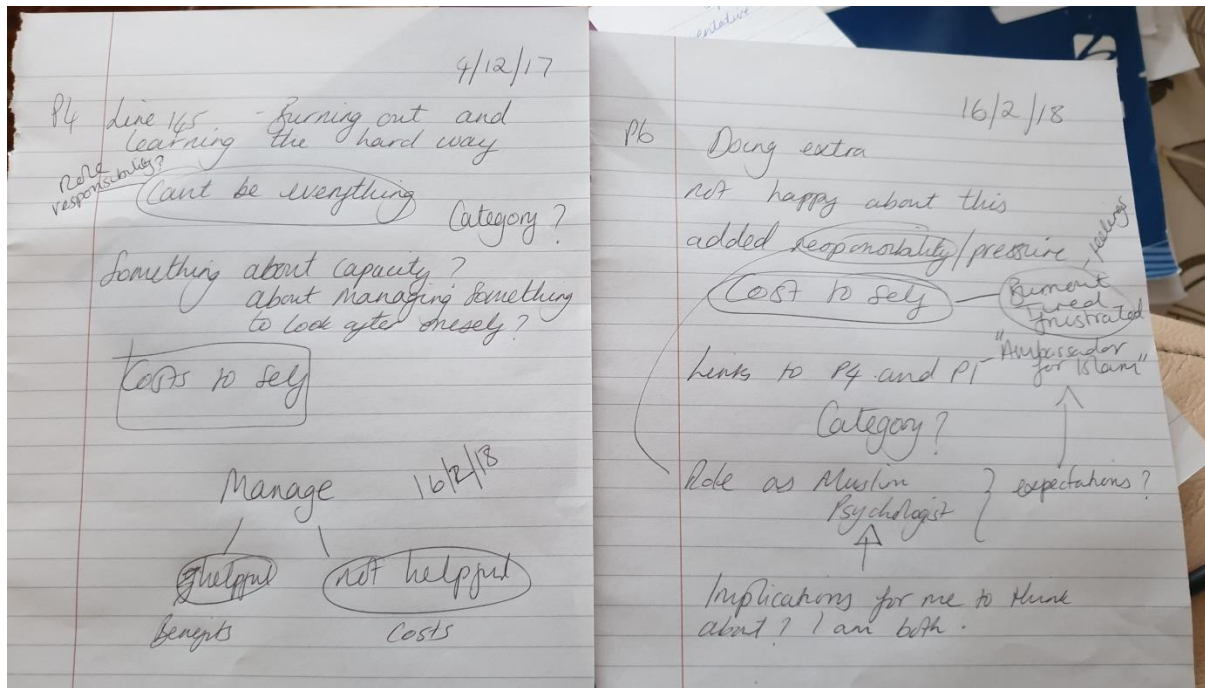 4/12/17
P4 Line 145 - Burning out and
learning the hard way
Role
responsibility?
Cant be everything
Category?
Something about capacity?
about managing something
to look after oneself?
Costs to self
Manage 16/2/18
helpful not helpful
Benefits Costs
entative
16/2/18
P6 Doing extra
not happy about this
added responsibility/pressure, feelings
Cost to self - Burnout
tired
frustrated
Links to P4 and P1 - "Ambassador
for Islam"
Category?
Role as Muslim
Psychologist
expectations?
Implications for me to think
about? I am both.